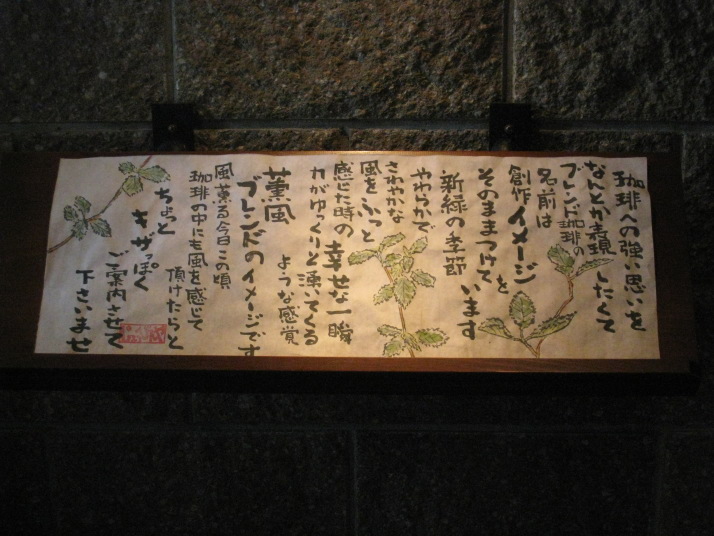 珈琲への強い思いを
なんとか表現したくて
ブレンド珈琲の
名前は
創作イメージを
そのままつけています
新緑の季節
やわらかで
さわやかな
風をふっと
感じた時の幸せな一瞬
力がゆっくりと湧いてくる
ような感覚
薫風
ブレンドのイメージです
風薫る今日この頃
珈琲の中にも風を感じて
頂けたらと
ちょっと
キザっぽく
ご案内させて
下さいませ